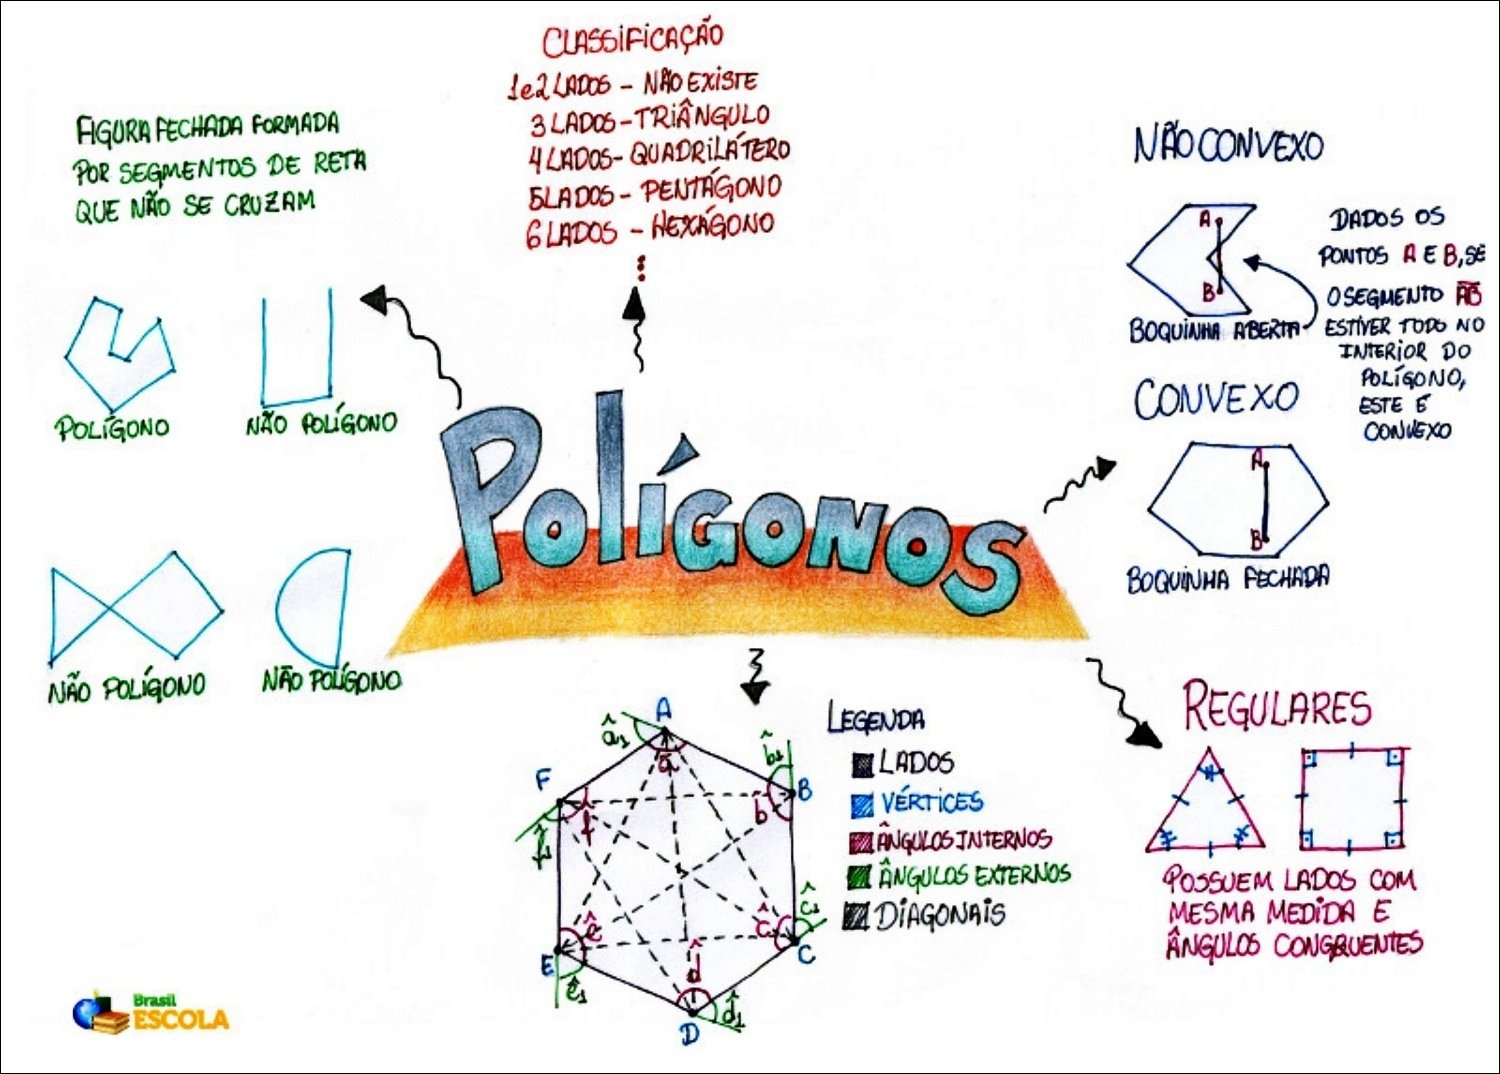 CLASSIFICAÇÃO
1 e 2 LADOS - NÃO EXISTE
3 LADOS - TRIÂNGULO
4 LADOS - QUADRILÁTERO
5 LADOS - PENTÁGONO
6 LADOS - HEXÁGONO
FIGURA FECHADA FORMADA
POR SEGMENTOS DE RETA
QUE NÃO SE CRUZAM
POLÍGONO
NÃO POLÍGONO
NÃO POLÍGONO
NÃO POLÍGONO
POLÍGONOS
NÃO CONVEXO
A
B
BOQUINHA ABERTA
DADOS OS
PONTOS A E B, SE
O SEGMENTO A̅B̅
ESTIVER TODO NO
INTERIOR DO
POLÍGONO,
ESTE É
CONVEXO
CONVEXO
A
B
BOQUINHA FECHADA
A
â1
a
F
f
f̂1
b̂1
B
b
ĉ1
ĉ
C
ê
E
ê1
d̂
d̂1
D
LEGENDA
LADOS
VÉRTICES
ÂNGULOS INTERNOS
ÂNGULOS EXTERNOS
DIAGONAIS
REGULARES
POSSUEM LADOS COM
MESMA MEDIDA E
ÂNGULOS CONGRUENTES
Brasil
ESCOLA